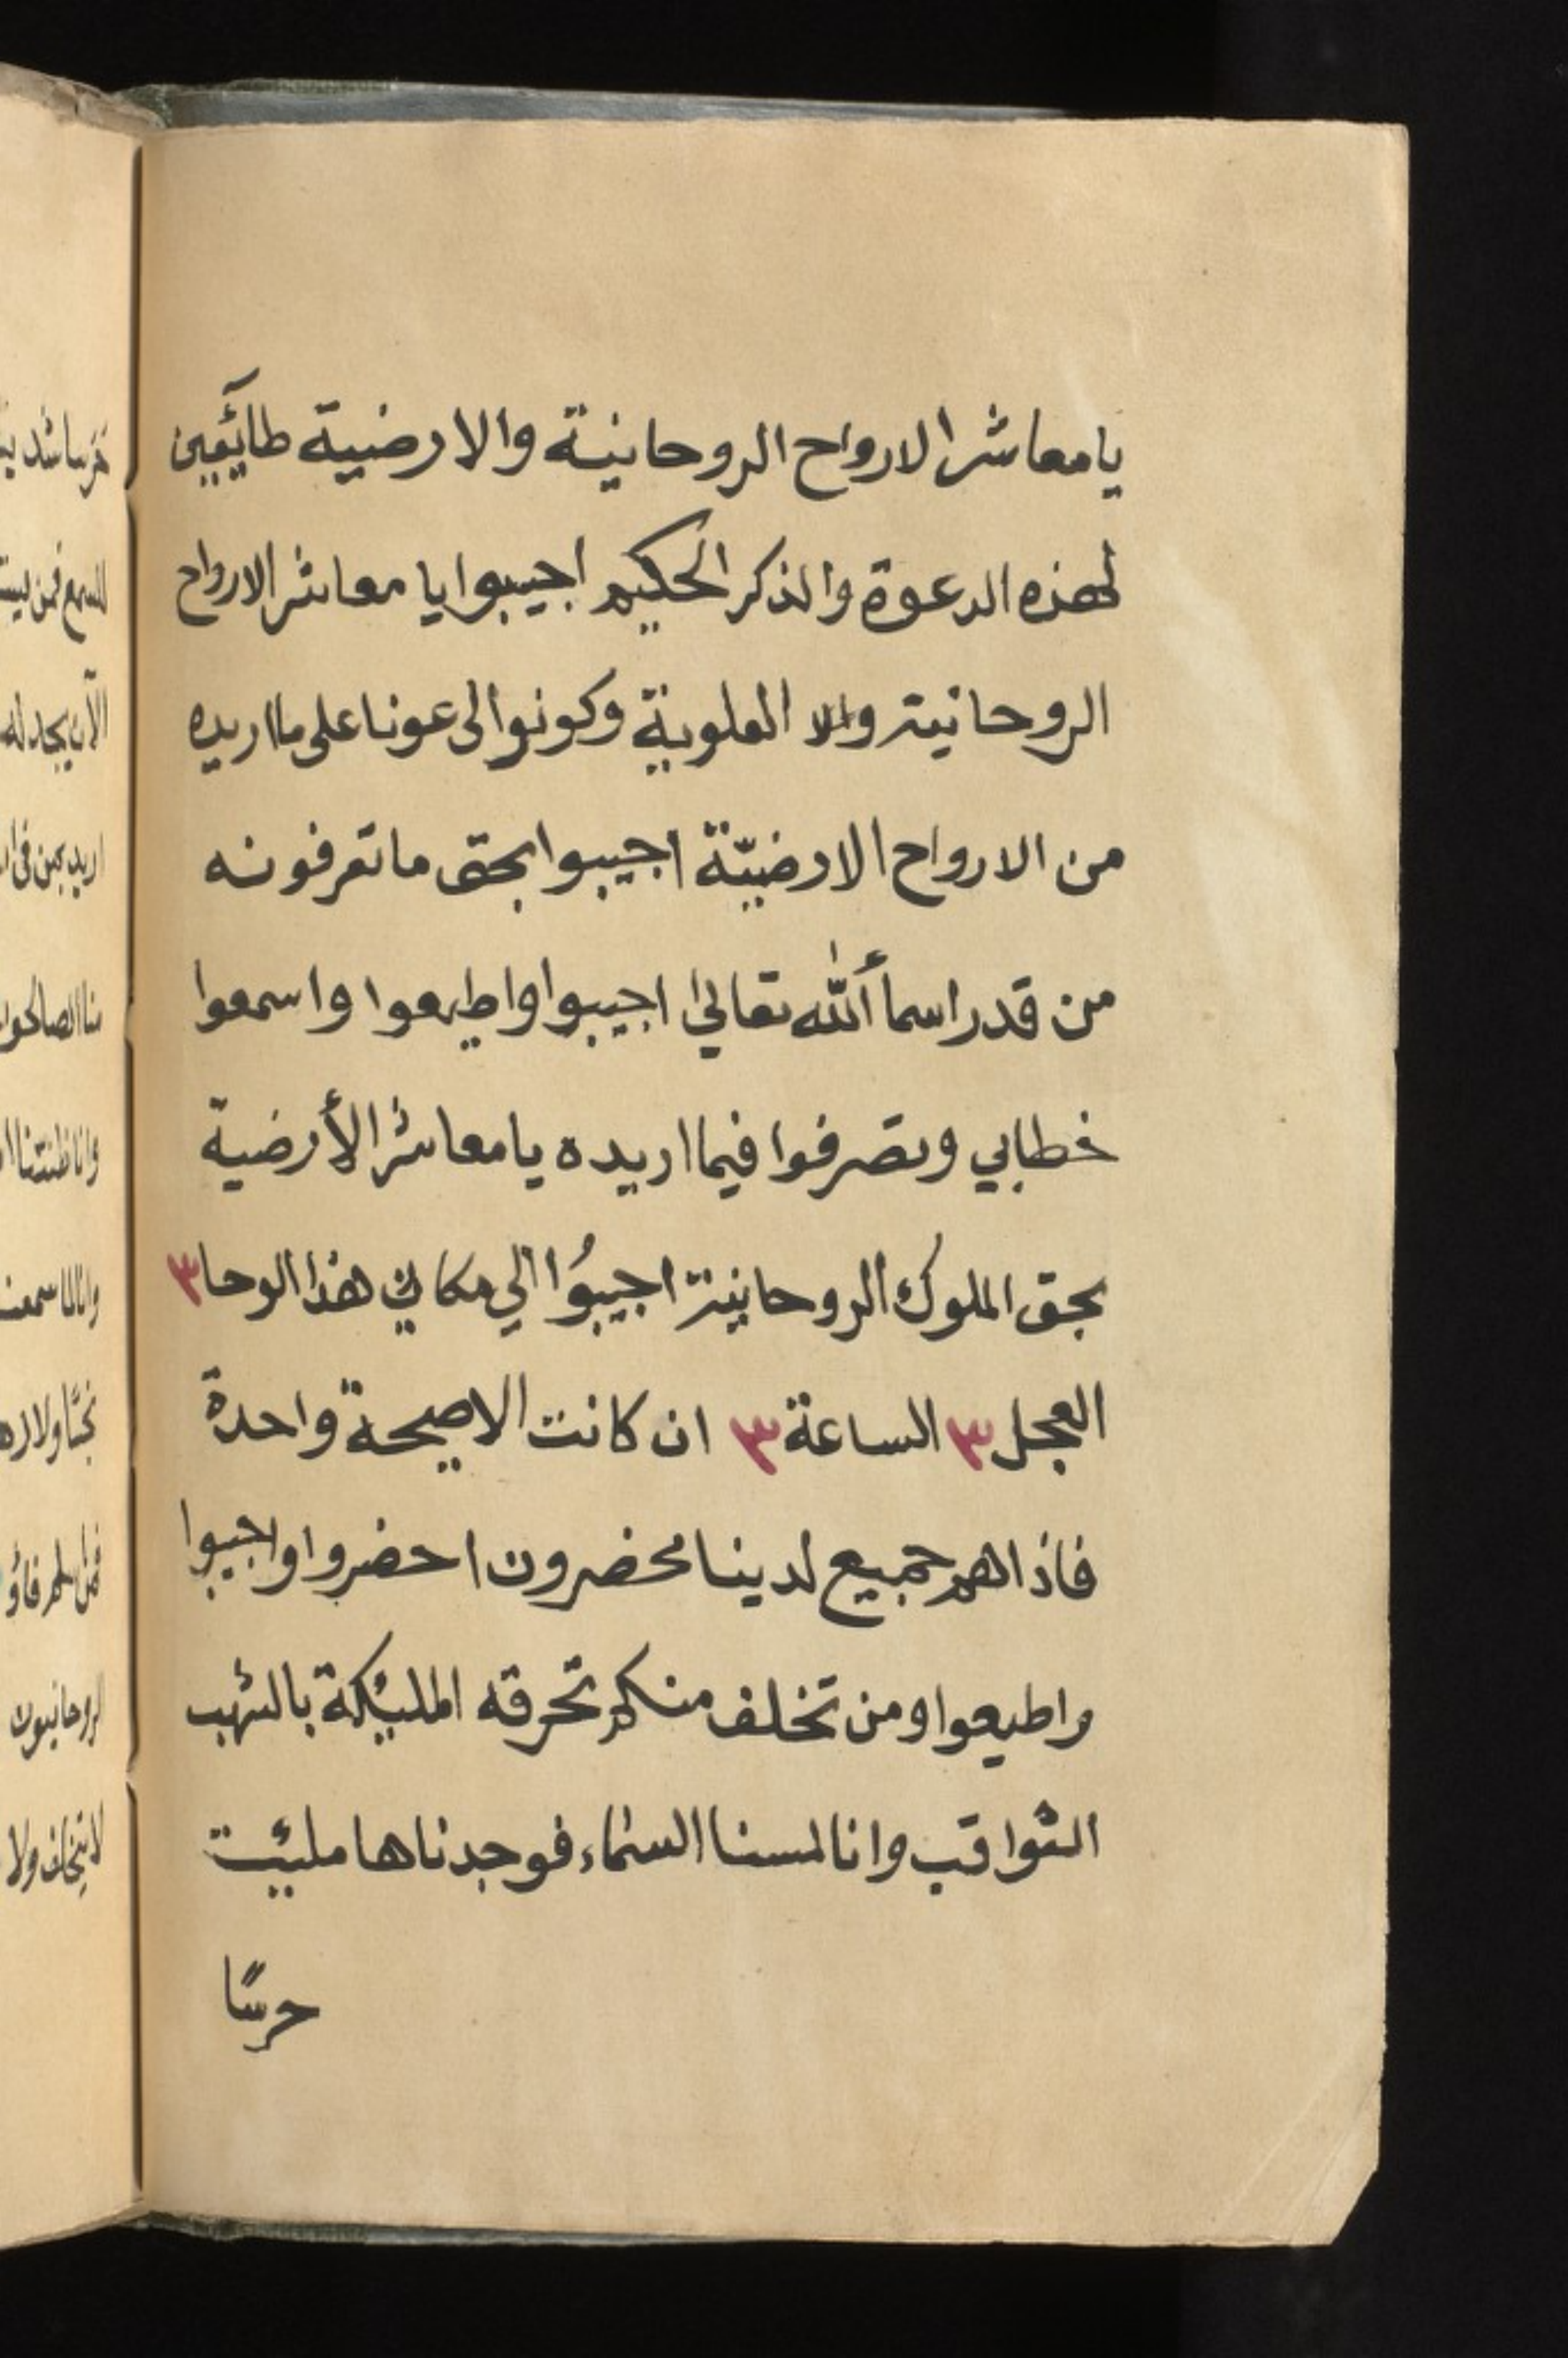 يا معاشر الارواح الروحانية والارضية طائعين
لهذه الدعوة والذكر الحكيم اجيبوا يا معاشر الارواح
الروحانية والا العلوية وكونوا لى عونا على ما اريده
من الارواح الارضيّة اجيبوا بحق ما تعرفونه
من قدر اسمأ الله تعالى اجيبوا واطيعوا واسمعوا
خطابي وتصرفوا فيما اريده يا معاشر الأرضية
بحق الملوك الروحانية اجيبُوا الي مكاني هذا الوحا ٣
العجل ٣ الساعة ٣ ان كانت الا صيحة واحدة
فاذا هم جميع لدينا محضرون احضروا واجيبوا
واطيعوا ومن تخلف منكم تحرقه المليئكة بالشهب
الثواقب وانا لمسنا السماء فوجدناها مليئت
حرسًا